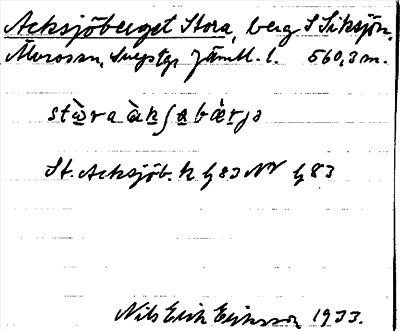 Acksjöberget Stora, berg S Siksjön,
Älvrossn, Svegstgr Jämtl. l. 560,3 m.
stɷ̀ra àkʃabæ̀rjə
St. Acksjöb. K h 83 NV h 83
Nils Erik Eriksson 1933.